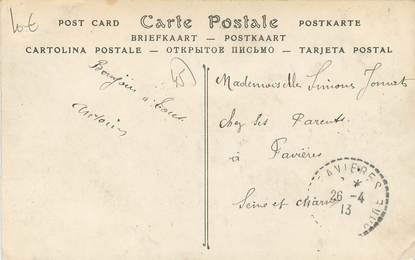 10€
POST CARD Carte Postale POSTKARTE
BRIEFKAART — POSTKAART
CARTOLINA POSTALE — ОТКРЫТОЕ ПИСЬМО — TARJETA POSTAL
Bonjour à tous
Antoine
Mademoiselle Simone
chez ses Parents
à Favières
Seine et Marne
FAVIERES
26 -4
13